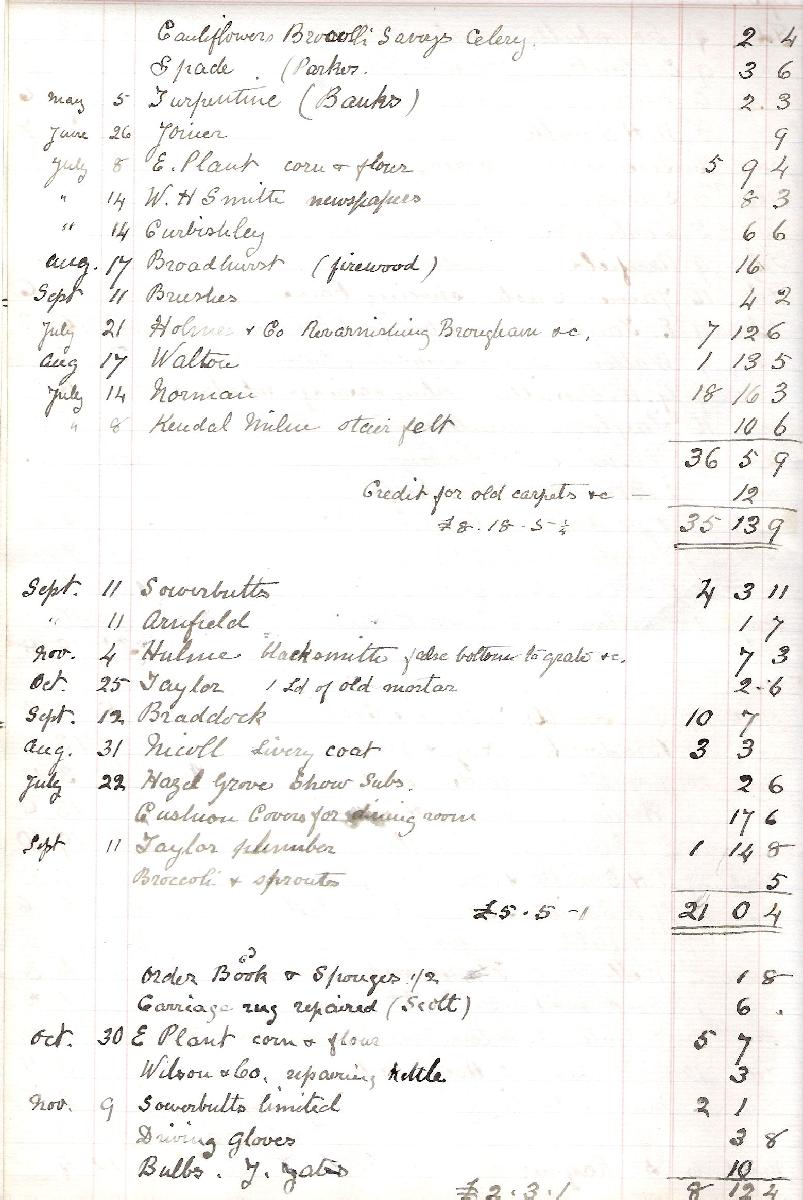 Cauliflowers Broccoli Savoys Celery. 2 4
Spade . (Parkes. 3 6
May 5 Turpentine (Banks) 2. 3
June 26 Joiner 9
July 8 E. Plant corn & flour 5 9 4
" 14 W. H Smith newspapers 8 3
" 14 Curbishley 6 6
Aug. 17 Broadhurst (firewood) 16
Sept 11 Brushes 4 2
July 21 Holmes & Co Revarnishing Brougham &c. 7 12 6
Aug 17 Walton 1 13 5
July 14 Norman 18 16 3
" 8 Kendal Milne stair felt 10 6
36 5 9
Credit for old carpets &c — 12
£8. 18. 5 ½ 35 13 9
Sept. 11 Sowerbutts 4 3 11
" 11 Arnfield 1 7
Nov. 4 Hulme blacksmith false bottom to grate &c. 7 3
Oct. 25 Taylor 1 Ld of old mortar 2. 6
Sept. 12 Braddock 10 7
Aug. 31 Nicoll Livery coat 3 3
July 22 Hazel Grove Show Subs. 2 6
Cushion Covers for dining room 17 6
Sept 11 Taylor plumber 1 14 8
Broccoli & sprouts 5
£5. 5 - 1 21 0 4
6d
Order Book & Sponges 1/2 1 8
Carriage rug repaired (Scott) 6 .
Oct. 30 E Plant corn & flour 5 7
Wilson & Co. repairing kettle 3
Nov. 9 Sowerbutts limited 2 1
Driving Gloves 3 8
Bulbs. J. Yates 10
£2. 3. 1 8 12 4